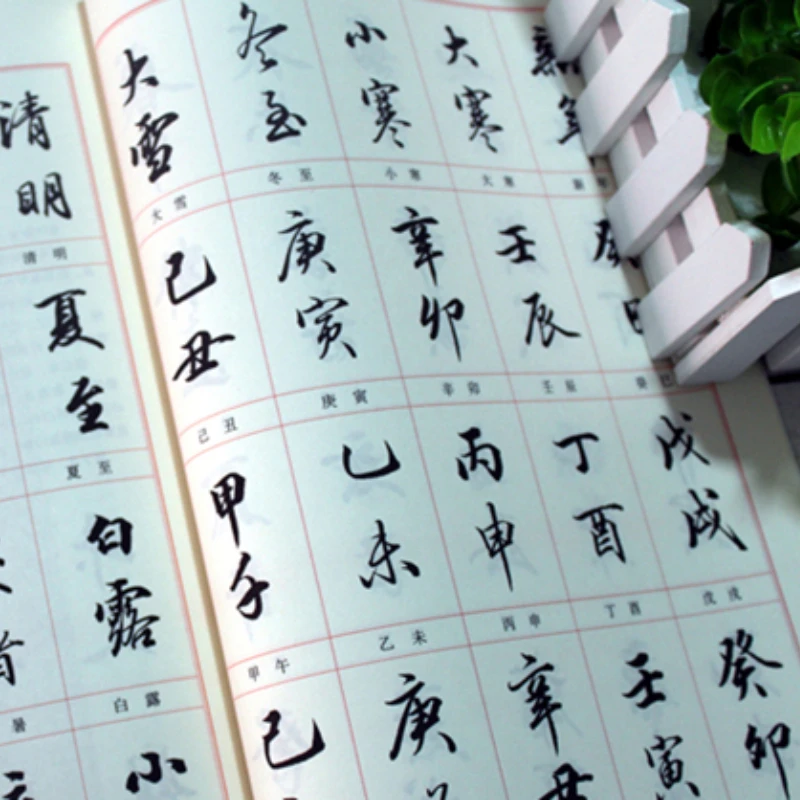 清明
清明
夏至
夏至
白露
暑 白露
小
大雪 冬至 小寒 大寒
大雪 冬至 小寒 大寒
己丑 庚寅 辛卯 壬辰
己丑 庚寅 辛卯 壬辰 癸巳
甲午 乙未 丙申 丁酉 戊戌
甲午 乙未 丙申 丁酉 戊戌
己 庚 辛丑 壬寅 癸卯